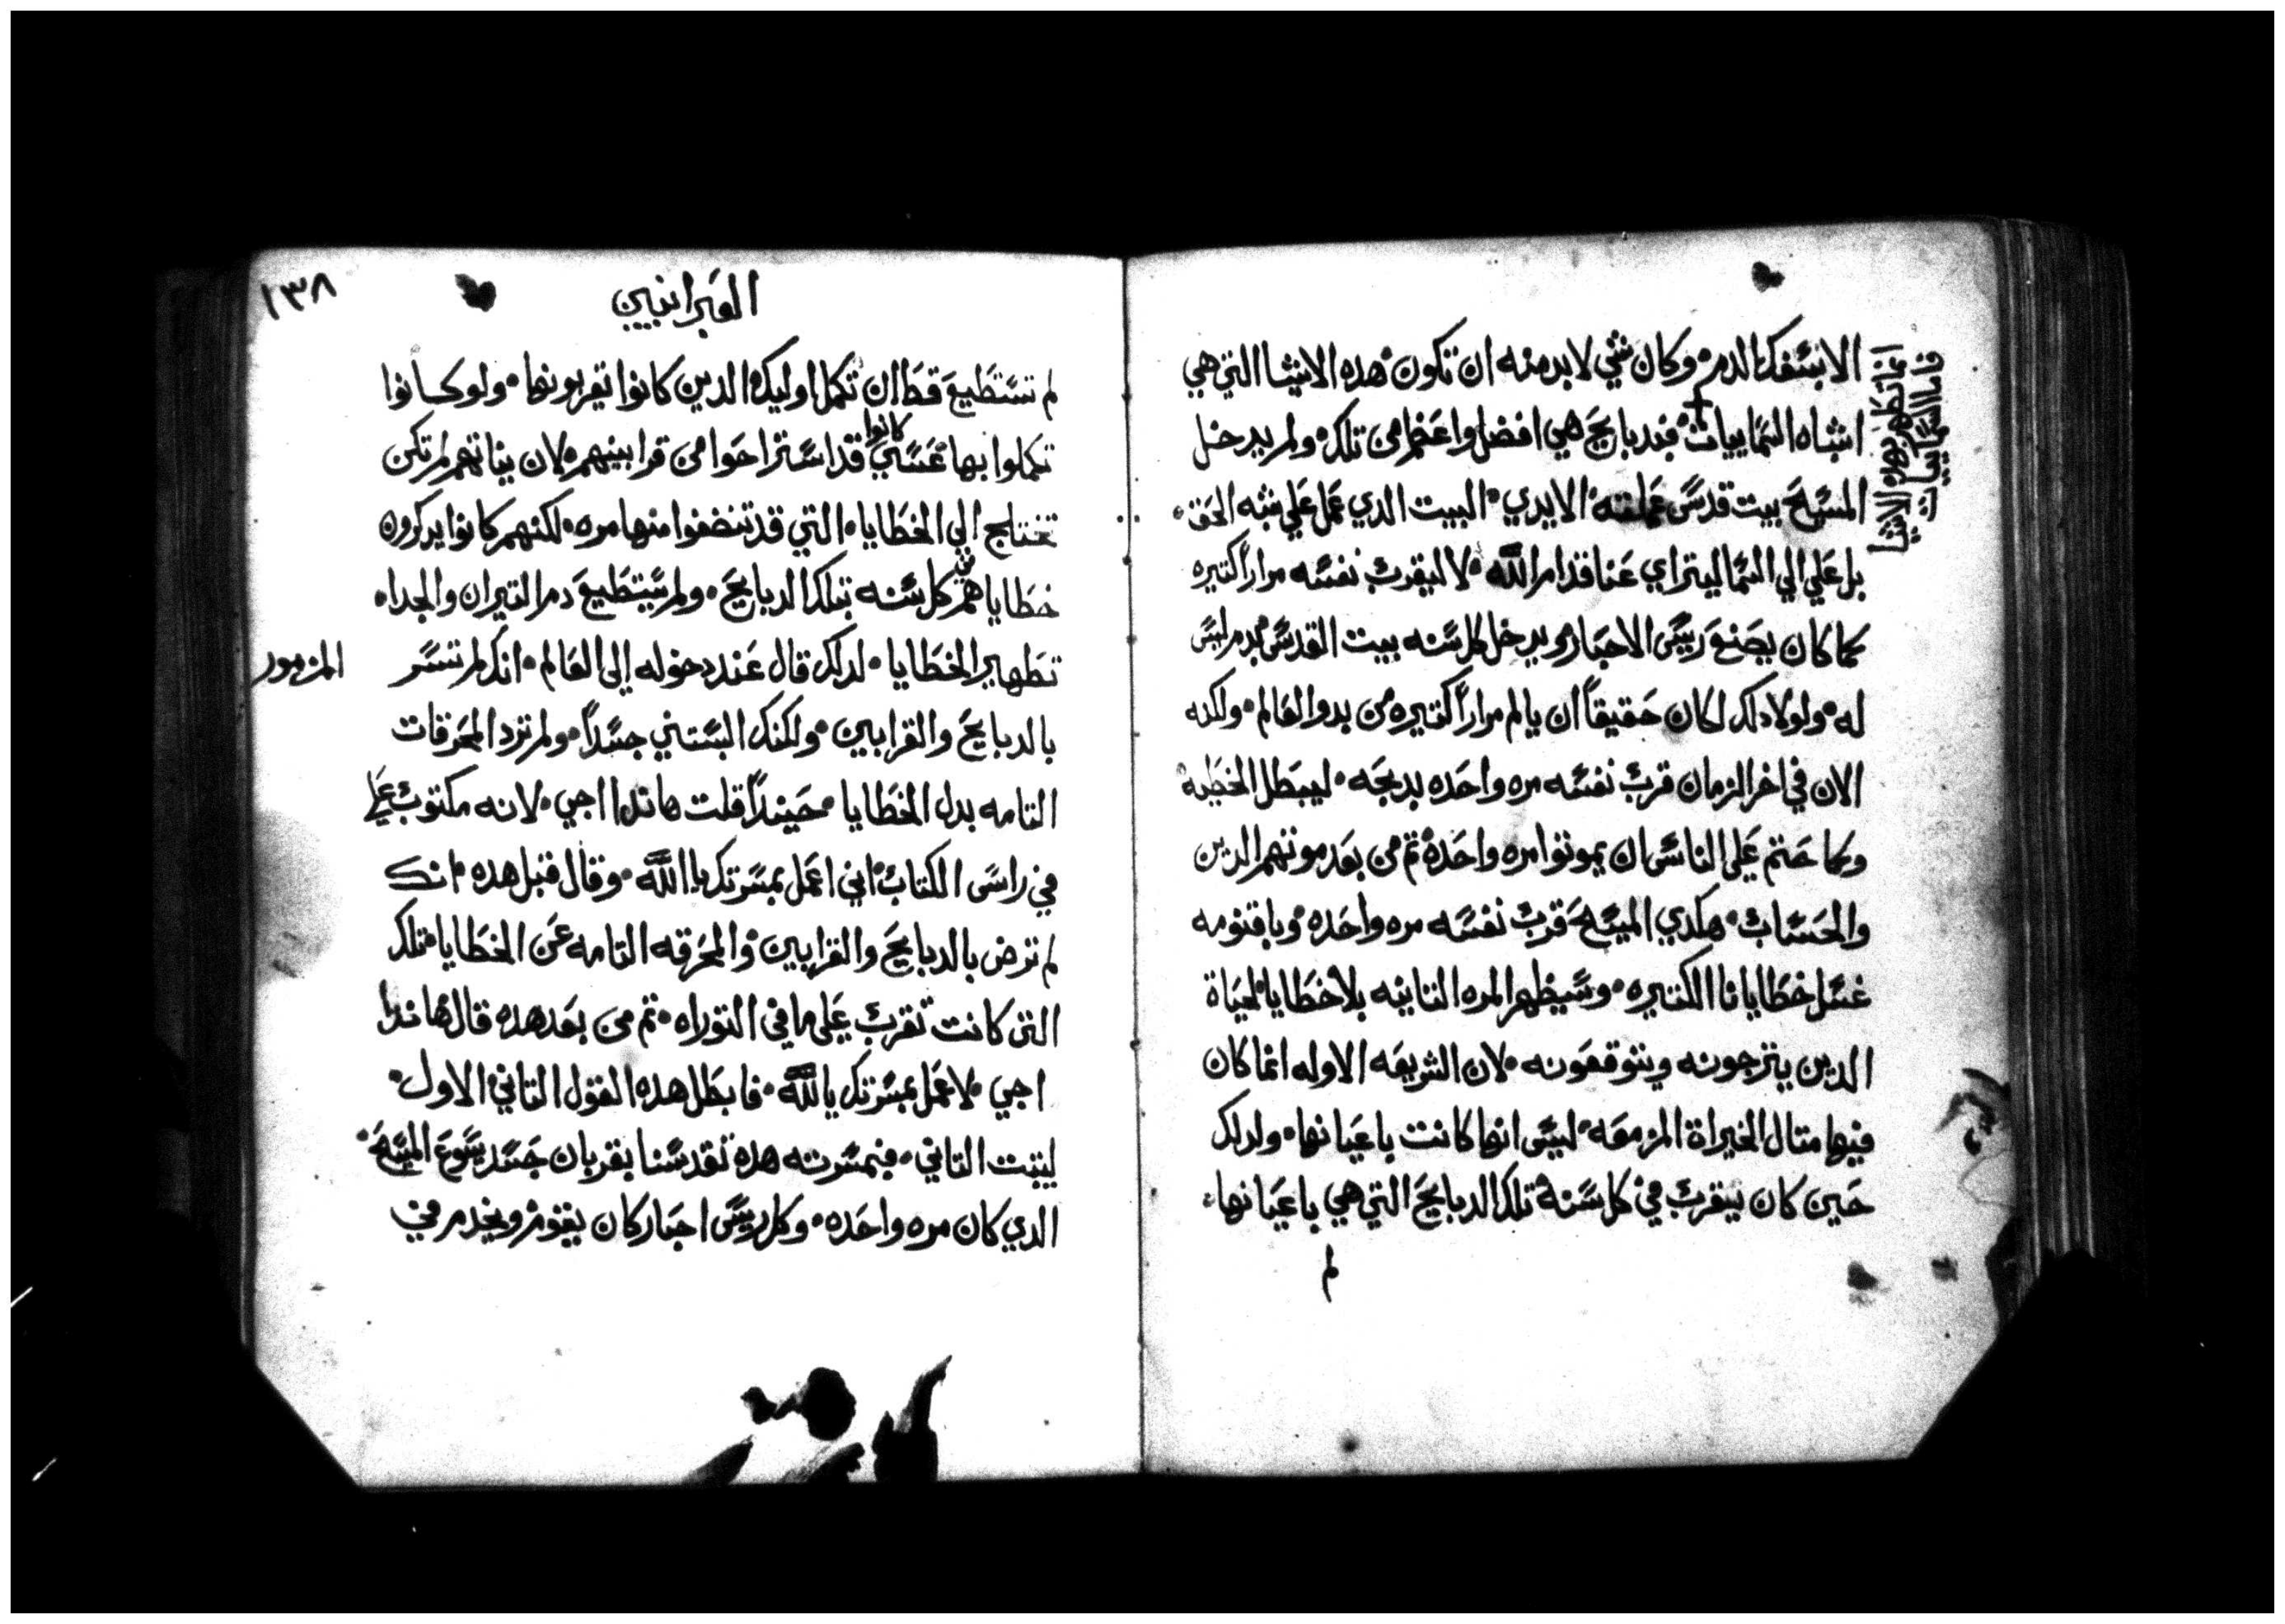 الابسفك الدم وكان شي لابد منه ان تكون هده الاشيا التي هي
اشباه السماييات فبدبايح هي افضل واعظم من تلك ولم يدخل
المسيح بيت قدس عملته الايدي البيت الدي عمل علي شبه الحق
بل علي الي السما ليتراي عنا قدام الله لا ليقرب نفسه مراراً كتيره
كما كان يصنع رييس الاحبار ويدخل كل سنه بيت القدس بدم ليس
له ولولا دلك لكان حقيقاً ان يالم مراراً كتيره من بدو العالم ولكنه
الان في اخر الزمان قرب نفسه مره واحده بدبحه ليبطل الخطيه
وكما حتم علي الناس ان يموتوا مره واحدة تم من بعد موتهم الدين
والحساب هكدي المسيح قرب نفسه مره واحده وباقنومه
غسل خطايانا الكتيره وسيظهر المره التانيه بلا خطايا لحياة
الدين يترجونه ويتوقعونه لان الشريعه الاوله انما كان
فيها متال الخيراة المزمعه ليس انها كانت باعيانها ولدلك
حين كان يتقرب في كل سنة تلك الدبايح التي هي باعيانها
لم
انما تطهر بهده الاشيا
فاما السماييات
١٣٨
العبرانيين
لم تستطيع قط ان تكمل اوليك الدين كانوا يقربونها ولو كانوا
تكملوا بها عسي كانوا قد استراحوا من قرابينهم لان نياتهم لم تكن
تحتاج الي الخطايا التي قد تنضفوا منها مره لكنهم كانوا يدكرون
خطاياهم في كل سنه بتلك الدبايح ولم يستطيع دم التيران والجداه
تطهير الخطايا لدلك قال عند دخوله الي العالم انك لم تسر
المزمور
بالدبايح والقرابين ولكنك البستني جسداً ولم ترد المحرقات
التامه بدل الخطايا حينيداً قلت هاندا اجي لانه مكتوب علي
في راس الكتاب اني اعمل بمسرتك يا الله وقال قبل هده انك
لم ترض بالدبايح والقرابين والمحرقه التامه عن الخطايا تلك
التي كانت تقرب علي ما في التوراه تم من بعد هده قال هاندا
اجي لاعمل بمسرتك يا الله فابطل هده القول التاني الاول
ليتبت التاني فبمسرته هده تقدسنا بقربان جسد يسوع المسيح
الدي كان مره واحده وكل رييس احبار كان يقوم ويخدم في